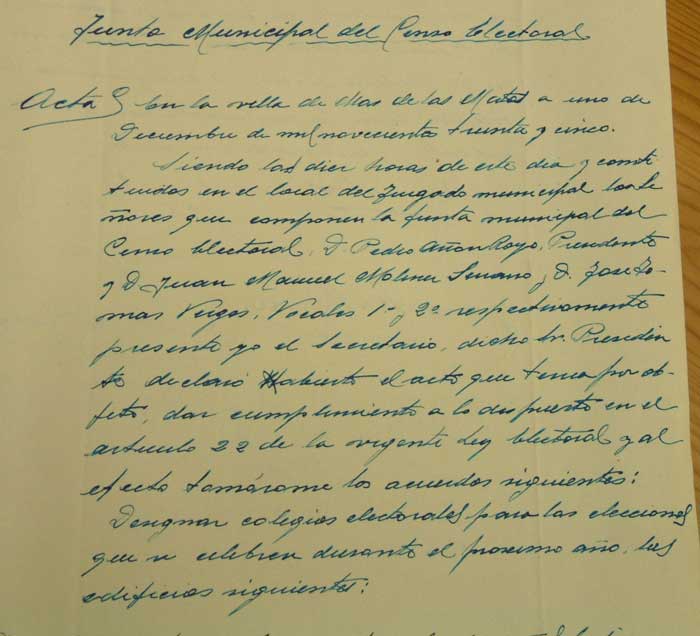 Junta Municipal del Censo Electoral
Acta En la villa de Mas de las Matas a uno de
Diciembre de mil novecientos treinta y cinco.
Siendo las diez horas de este dia y consti
tuidos en el local del Juzgado municipal los Se
ñores que componen la Junta municipal del
Censo Electoral, D. Pedro Añon Royo, Presidente
y D. Juan Manuel Moliner Serrano y D. Jose To-
mas Vergos, Vocales 1º y 2º respectivamente
presente yo el Secretario, dicho Sr. Presiden
te declaró abierto el acto que tenia por ob-
jeto, dar cumplimiento a lo dispuesto en el
articulo 22 de la vigente Ley Electoral y al
efecto tomáronse los acuerdos siguientes:
Designar colegios electorales para las elecciones
que se celebren durante el proximo año, los
edificios siguientes: